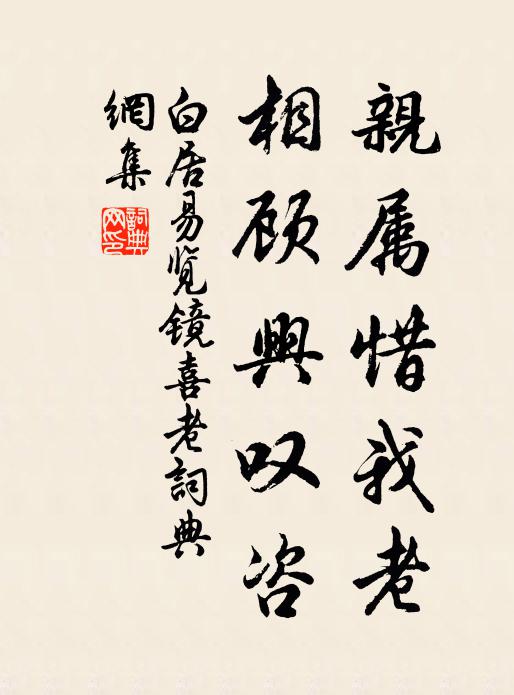 親属惜我老
相顾興叹咨
白居易览镜喜老詞典
網集
詞典
网印